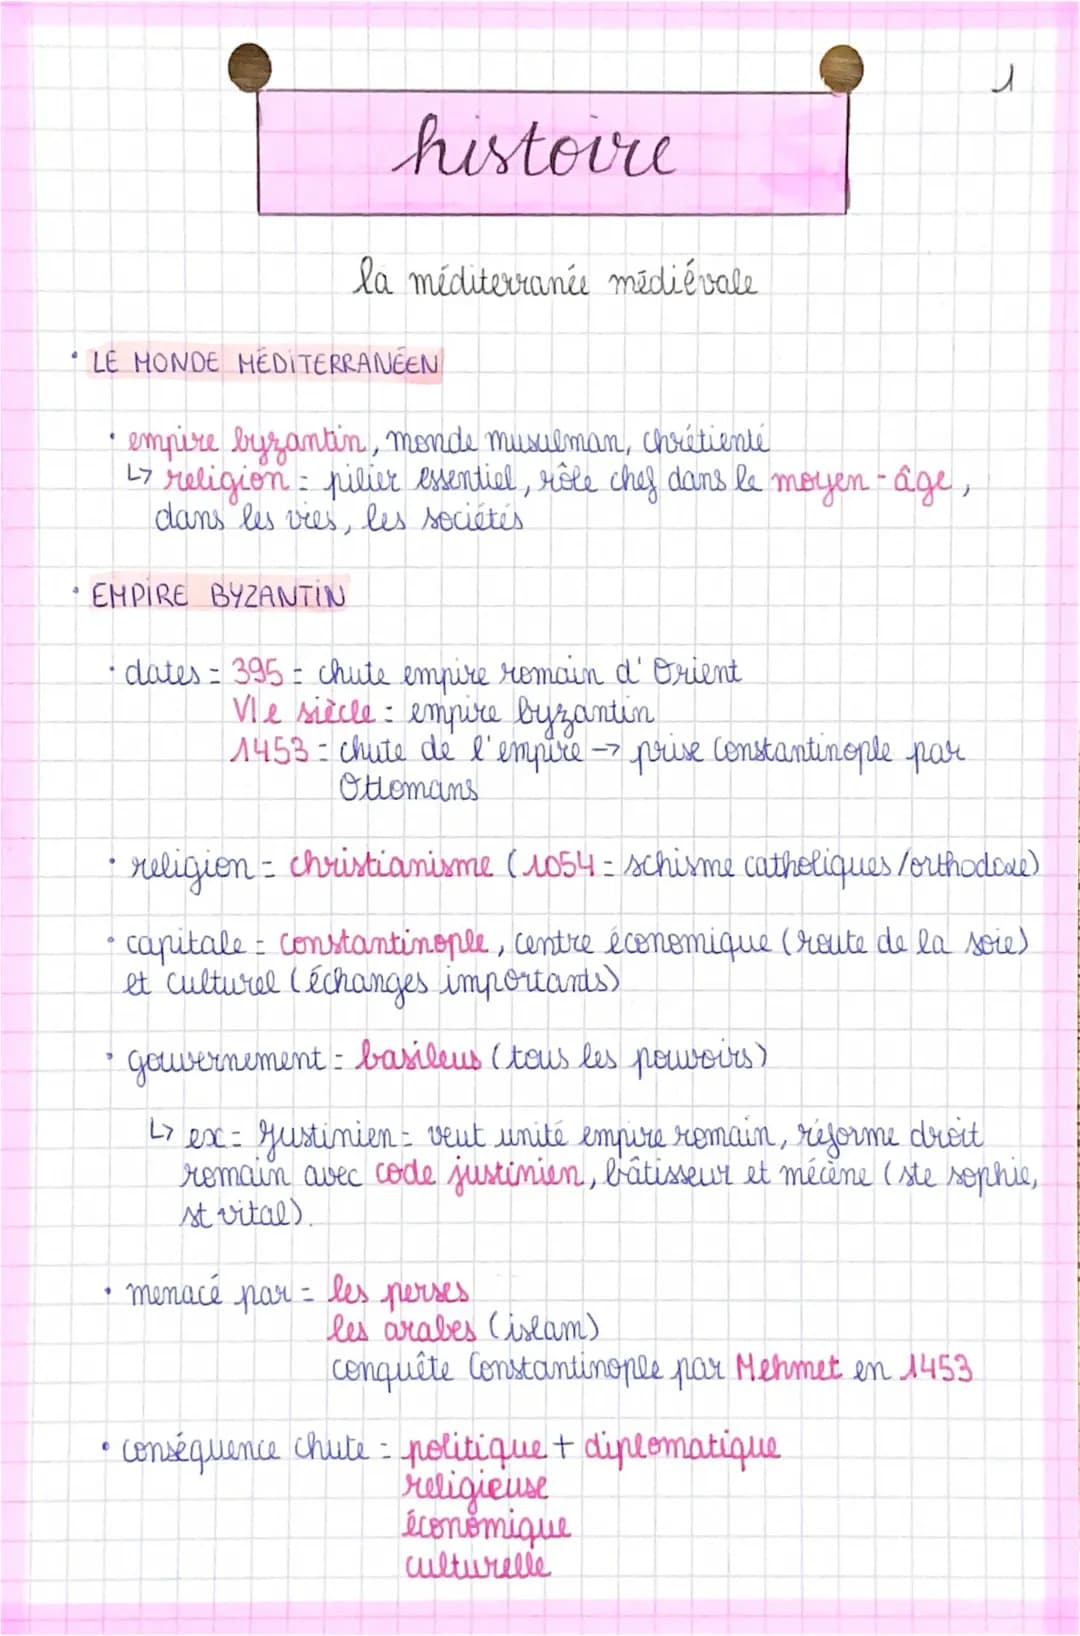 1
histoire
la méditerranée médiévale
• LE MONDE MÉDITERRANÉEN
• empire byzantin, monde musulman, chrétienté
↳ religion = pilier essentiel, rôle chef dans le moyen-âge,
dans les vies, les sociétés
• EMPIRE BYZANTIN
• dates = 395 = chute empire romain d'Orient
VIe siècle = empire byzantin
1453 = chute de l'empire → prise Constantinople par
Ottomans
• religion = christianisme (1054 = schisme catholiques/orthodoxe)
• capitale = constantinople, centre économique (route de la soie)
et culturel (échanges importants)
• gouvernement = basileus (tous les pouvoirs)
↳ ex = Justinien = veut unité empire romain, réforme droit
romain avec code justinien, bâtisseur et mécène (ste sophie,
st vital).
• menacé par = les perses
les arabes (islam)
conquête Constantinople par Mehmet en 1453
• conséquence chute = politique + diplomatique
religieuse
économique
culturelle